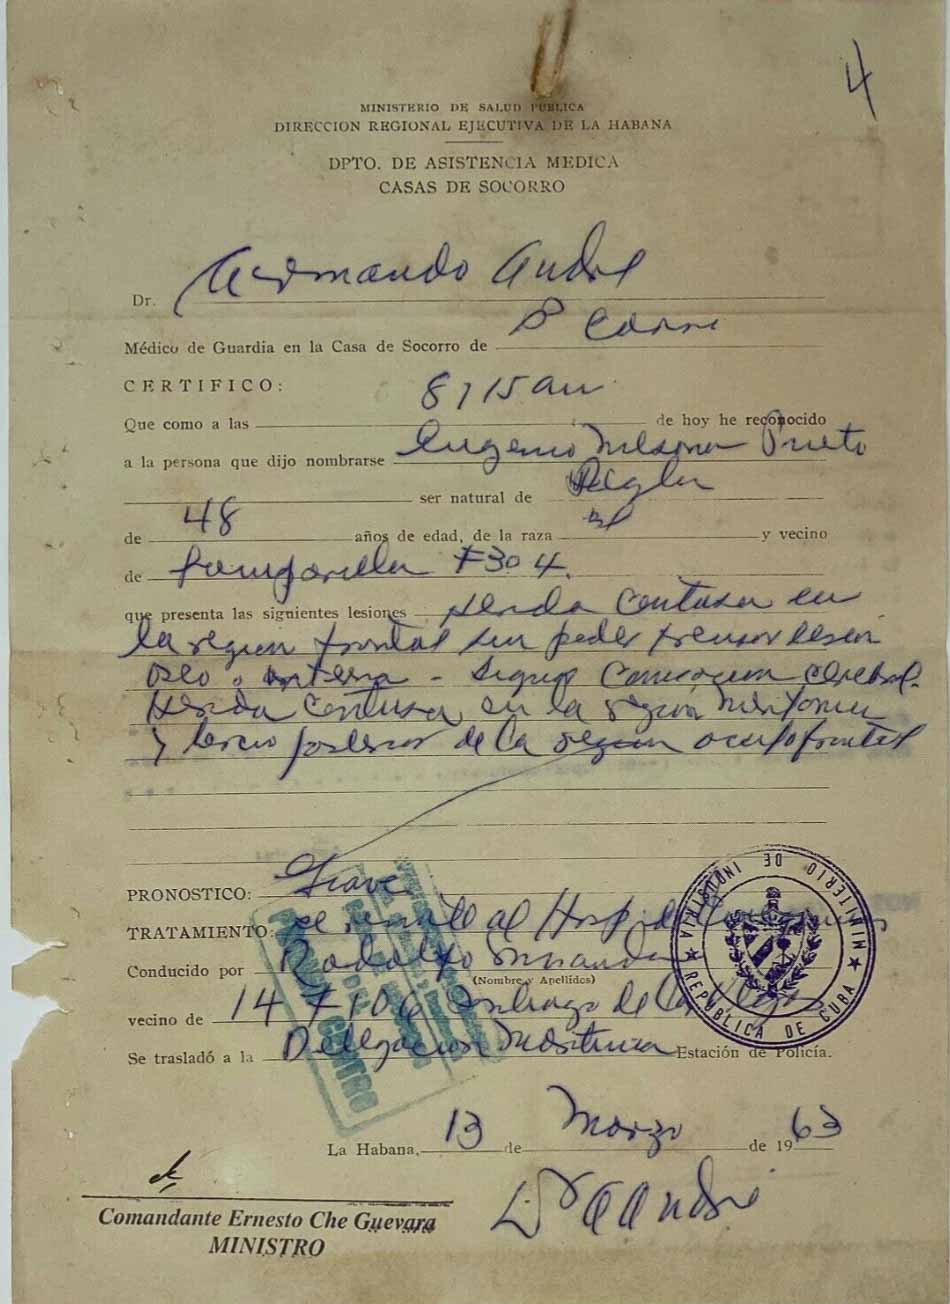 4
MINISTERIO DE SALUD PUBLICA
DIRECCION REGIONAL EJECUTIVA DE LA HABANA
DPTO. DE ASISTENCIA MEDICA
CASAS DE SOCORRO
Dr. Armando André
Médico de Guardia en la Casa de Socorro de
CERTIFICO:
Que como a las 8/15 am de hoy he reconocido
a la persona que dijo nombrarse Eugenio Prieto
ser natural de Regla
de 48 años de edad, de la raza y vecino
de Lamparilla #304.
que presenta las siguientes lesiones Herida contusa en
la region frontal sin poder lesion
oseo o interna - cerebral.
Herida contusa en la región
y tercio posterior de la region
PRONOSTICO: Grave
TRATAMIENTO: se remite al Hosp. de
Conducido por Rodolfo Miranda
(Nombre y Apellidos)
vecino de 14 #106 Santiago de Las Vegas
Se trasladó a la Delegacion Estación de Policía.
La Habana, 13 de Marzo de 1963
Dr A André
Comandante Ernesto Che Guevara
MINISTRO
MINISTERIO DE INDUSTRIA
REPUBLICA DE CUBA
CENTRO